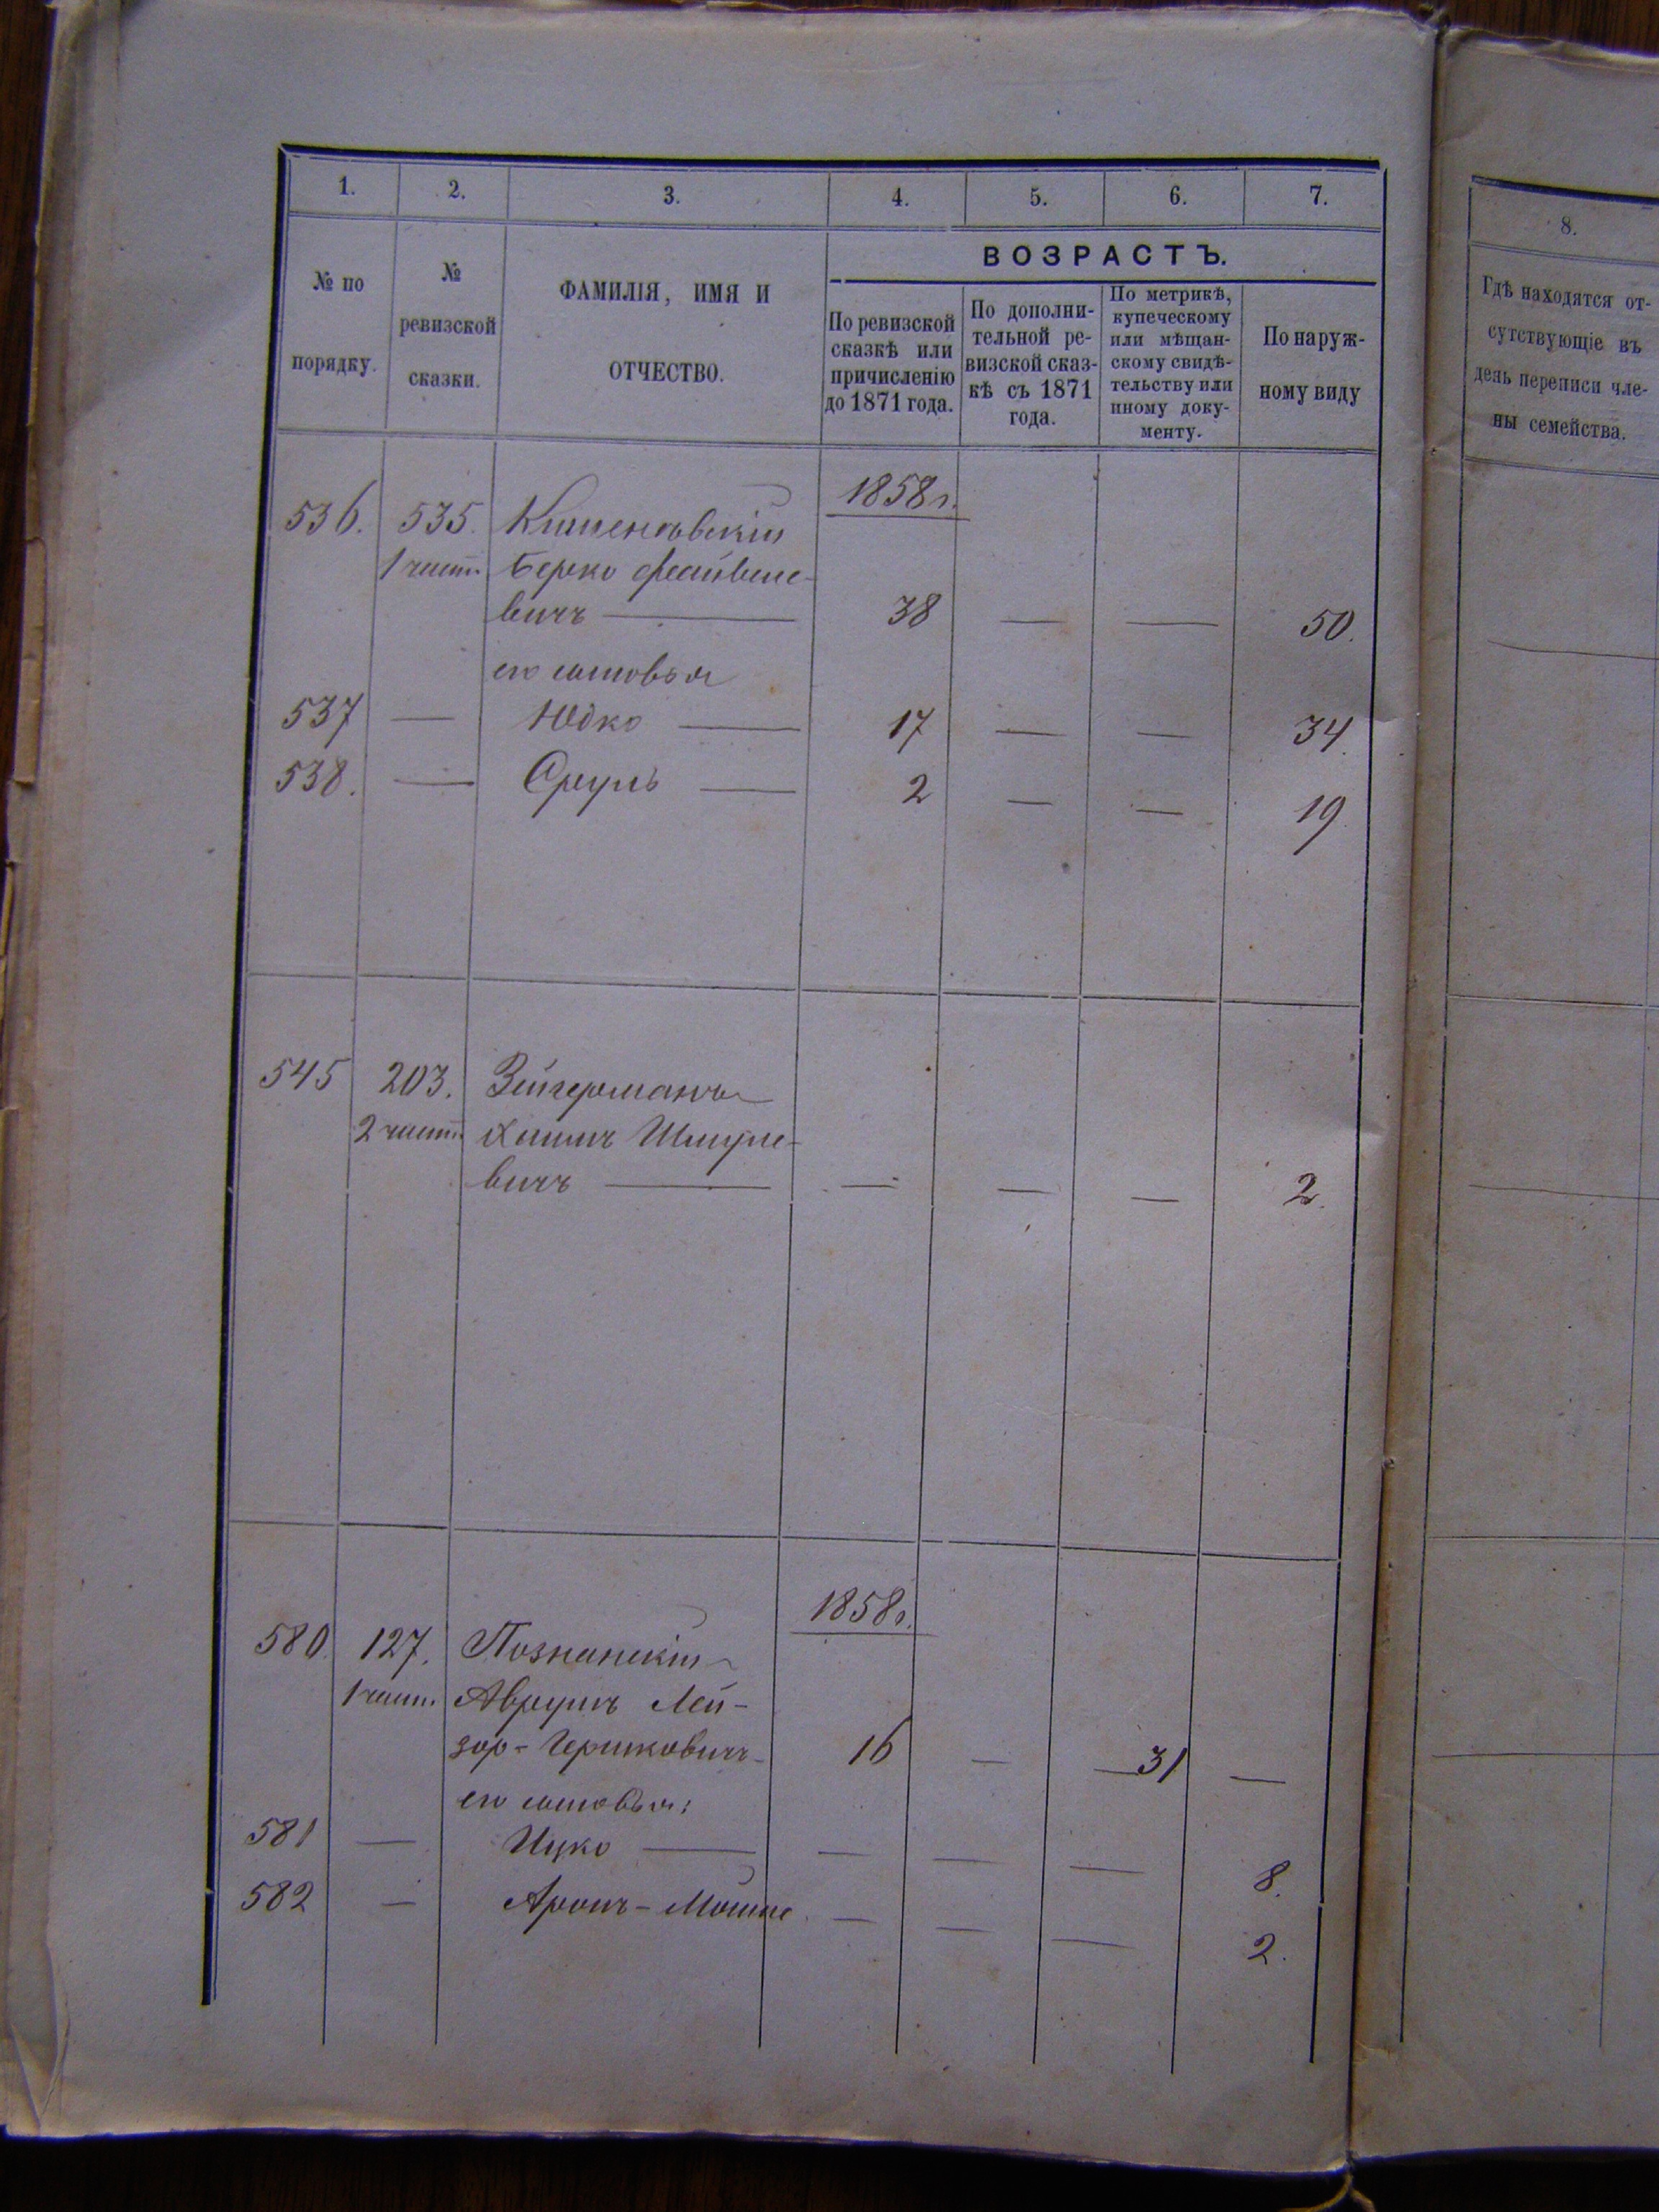 1. 2. 3. 4. 5. 6. 7.
№ по порядку.
№ ревизской сказки.
ФАМИЛІЯ, ИМЯ И ОТЧЕСТВО.
ВОЗРАСТЪ.
По ревизской сказкѣ или причисленію до 1871 года.
По дополни-
тельной ре-
визской сказ-
кѣ съ 1871
года.
По метрикѣ,
купеческому
или мѣщан-
скому свидѣ-
тельству или
иному доку-
менту.
По наруж-
ному виду
1858 г.
536. 535.
1 част. Берко Файвеле-
вичъ — 38 — — 50.
его сыновья
537 — Юдко — 17 — — 34.
538. — Сруль — 2 — — 19.
545 203. Зейгерманъ
2 част. Хаимъ Шмуле-
вичъ — — — — 2.
1858 г.
580. 127. Познанскій
1 част. Аврумъ Лей-
зор-Гершковичъ- 16 — —31 —
его сыновья:
581 — Ицко — — — — 8.
582 — Аронъ-Мошке — — — 2.
8.
Гдѣ находятся от-
сутствующіе въ
день переписи чле-
ны семейства.